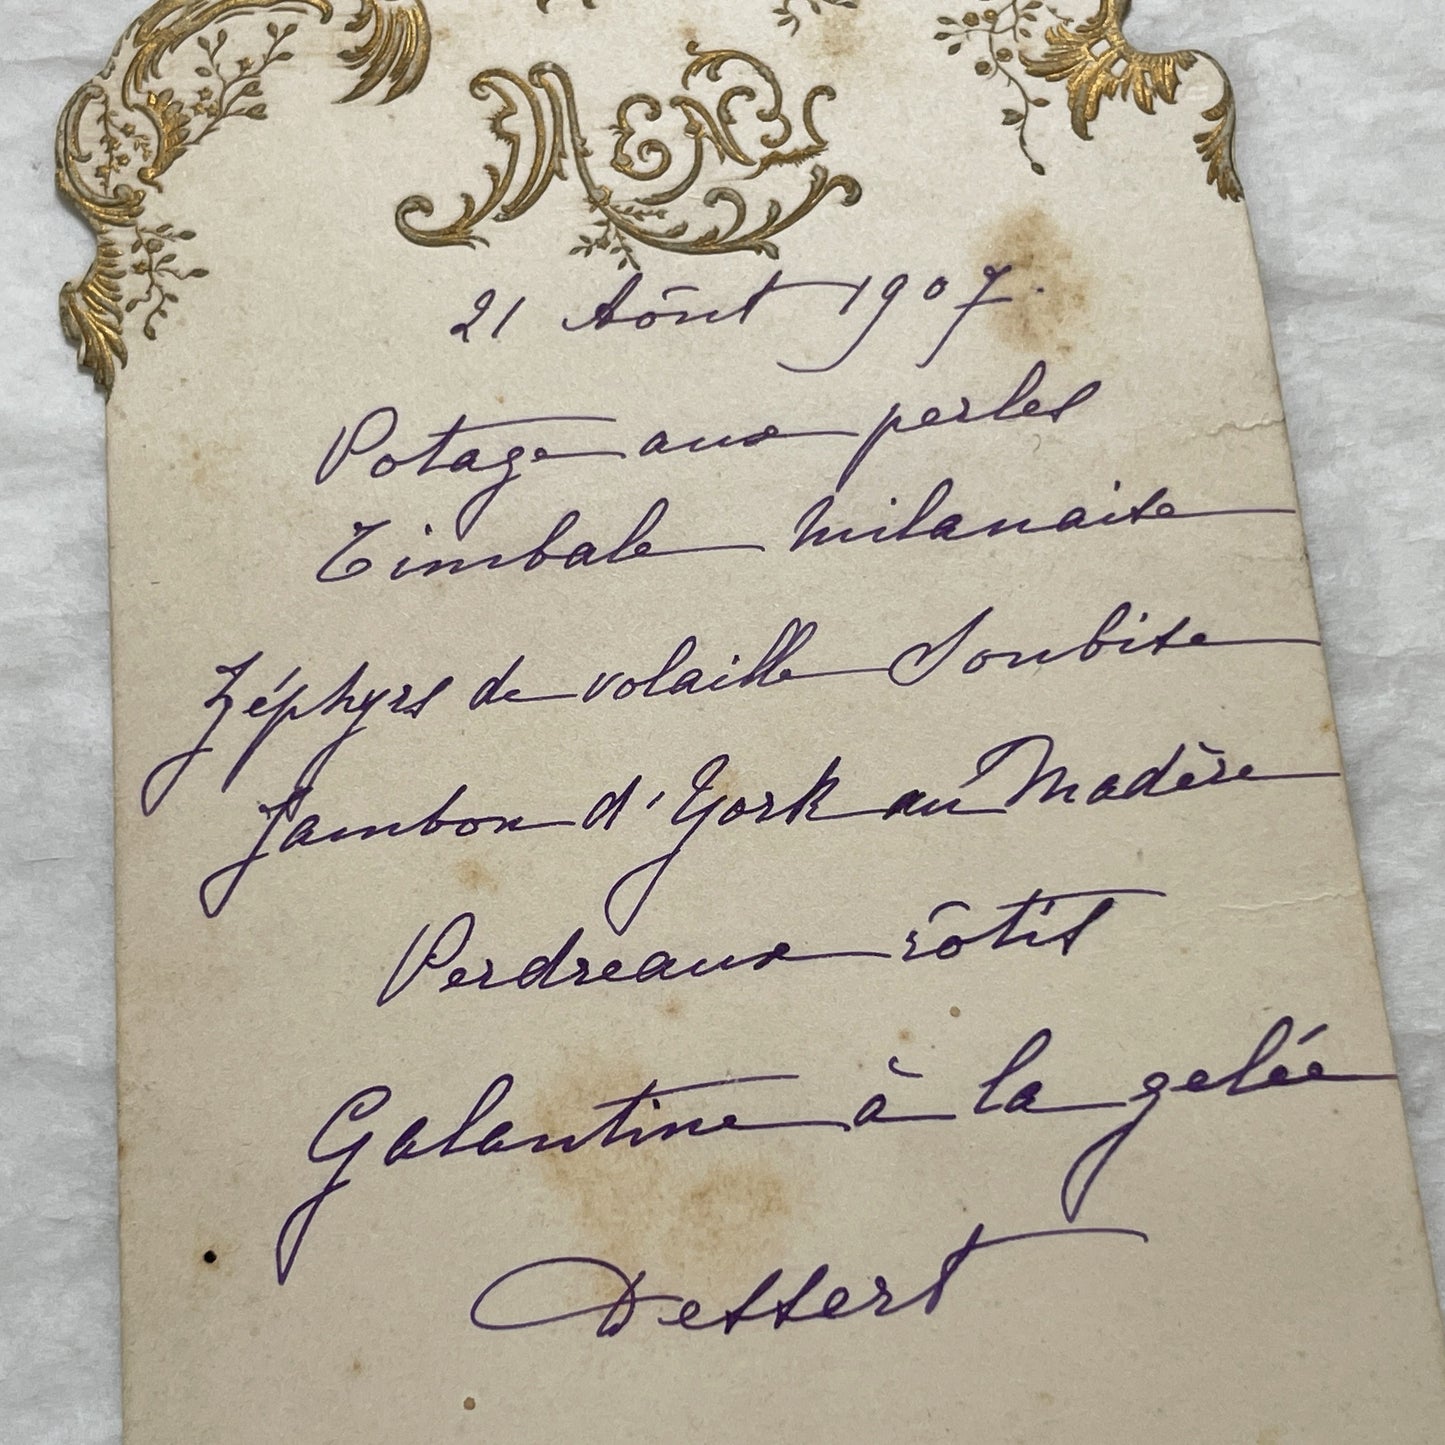 MENU
21 Août 1907.
Potage aux perles
Timbale milanaise
Zéphyrs de volaille Soubise
Jambon d'York au Madère
Perdreaux rôtis
Galantine à la gelée
Dessert